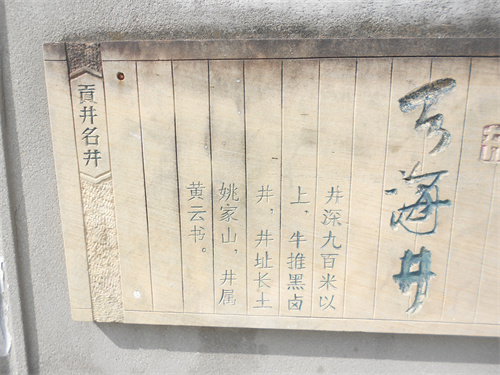 海井
井深九百米以
上、牛推黑卤
井，井址长土
姚家山，井属
黄云书。
貢井名井